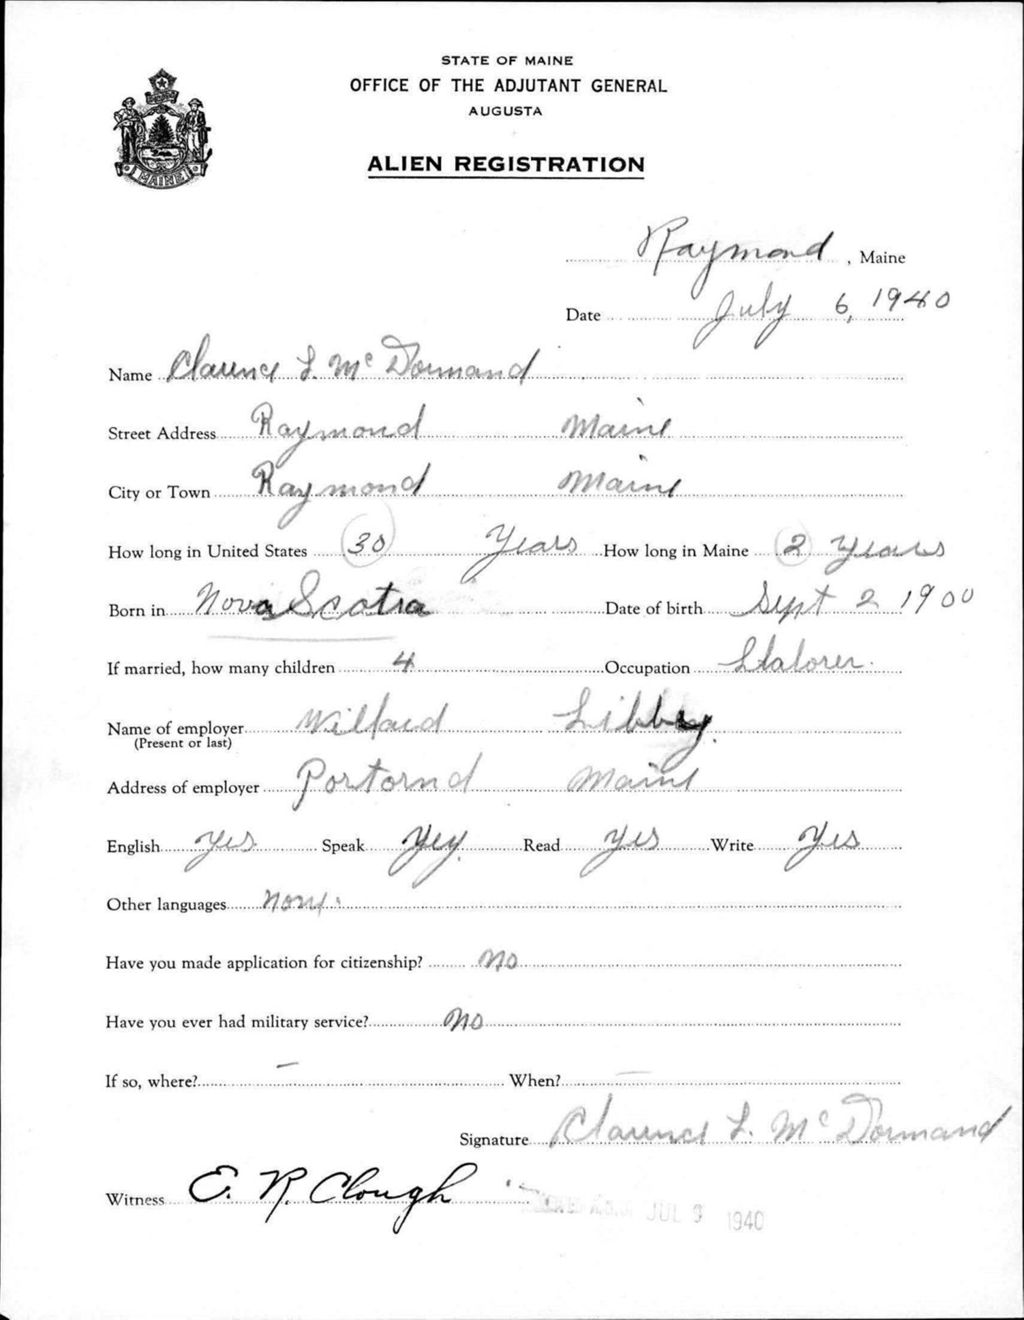 STATE OF MAINE
OFFICE OF THE ADJUTANT GENERAL
AUGUSTA
ALIEN REGISTRATION
MAINE
Raymond, Maine
Date July 6, 1940
Name Clarence L. McDormand
Street Address Raymond Maine
City or Town Raymond Maine
How long in United States 30 Years How long in Maine 2 years
Born in Nova Scotia Date of birth Sept 2 1900
If married, how many children 4 Occupation Llalorer.
Name of employer Willard Libbey.
(Present or last)
Address of employer Portornd Maine
English yes Speak Yey. Read Yes Write Yes
Other languages None.
Have you made application for citizenship? No
Have you ever had military service? No
If so, where? – When? –
Signature Clarence L. McDormand
Witness E. R. Clough
A.G.O. JUL 9 1940